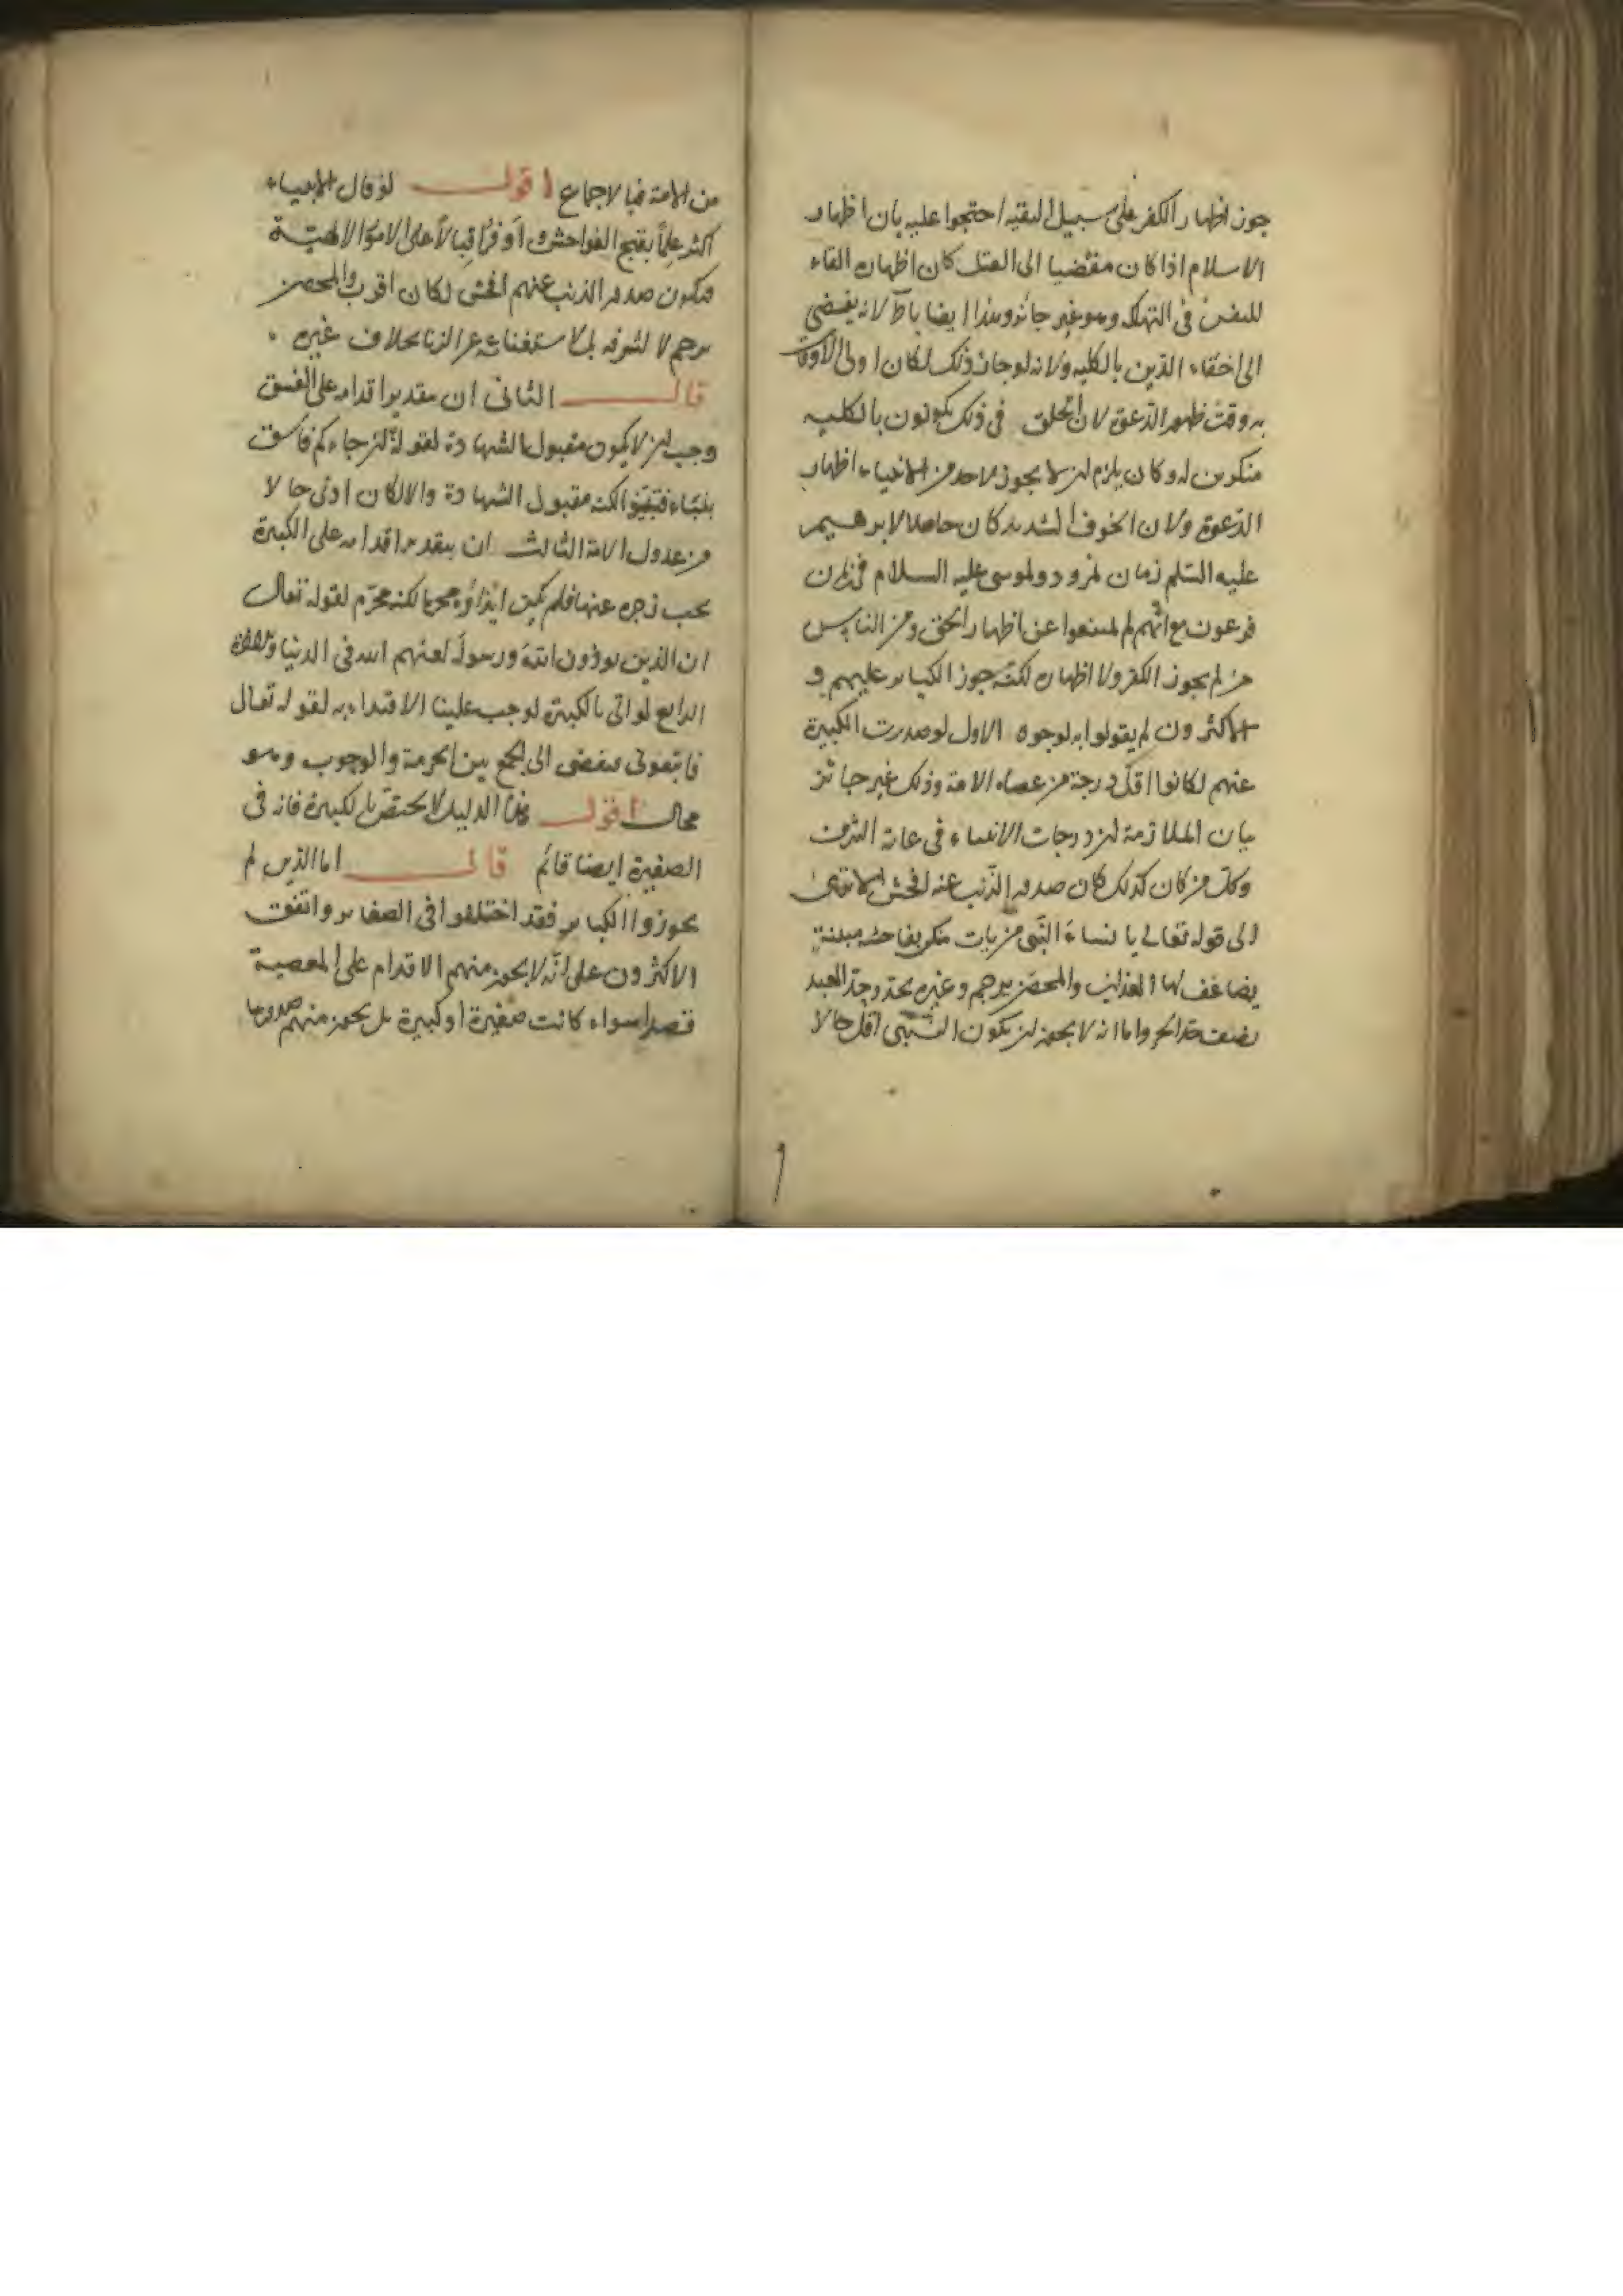 جوز اظهار الكفر على سبيل التقيه احتجوا عليه بان اظهار
الاسلام اذا كان مفضيا الى القتل كان اظهاره القاء
للنفس فى التهلكه وهو غير جائز وهذا ايضا باطل لانه يفضى
الى اخفاء الدين بالكليه ولانه لو جاز ذلك لكان اولى الاوقات
به وقت ظهور الدعوة لان الخلق فى ذلك يكونون بالكليه
منكرين له وكان يلزم ان لا يجوز لاحد من الانبياء اظهار
الدعوة ولان الخوف الشديد كان حاصلا لابرهيم
عليه السلم زمان نمرود ولموسى عليه السلام فى زمان
فرعون مع انهم لم يمتنعوا عن اظهار الحق ومن الناس
من لم يجوز الكفر ولا اظهاره لكنه جوز الكبائر عليهم و
الاكثرون لم يقولوا به لوجوه الاول لو صدرت الكبيرة
عنهم لكانوا اقل درجة من عصاه الامة وذلك غير جائز
بيان الملازمة ان درجات الانبياء فى غاية الشرف
وكل من كان كذلك كان صدور الذنب عنه افحش الا ترى
الى قوله تعالى يا نساء النبى من يات منكن بفاحشه مبينة
يضاعف لها العذاب والمحصن يرجم وغيره يحد وحد العبد
نصف حد الحر واما انه لا يجوز ان يكون النبى اقل حالا
من الامة فبالاجماع اقول لو قال الانبياء
اكثر علما بقبح الفواحش واوفر اقبالا على الامور الالهية
فيكون صدور الذنب عنهم افحش لكان اقرب والمحصن
يرجم لا لشرفه بل لاستغنائه عن الزنا بخلاف غيره
قال الثانى ان بتقدير اقدامه على الفسق
وجب ان لا يكون مقبول الشهادة لقوله ان جاءكم فاسق
بنباء فتبينوا لكنه مقبول الشهادة والا لكان ادنى حالا
من عدول الامة الثالث ان بتقدير اقدامه على الكبيرة
يجب زجره عنها فلم يكن ايذاؤه محرما لكنه محرم لقوله تعالى
ان الذين يوذون الله ورسوله لعنهم الله فى الدنيا والاخرة
الرابع لو اتى بالكبيرة لوجب علينا الاقتداء به لقوله تعالى
فاتبعونى فيفضى الى الجمع بين الحرمة والوجوب وهو
محال اقول هذا الدليل لا يختص بالكبيرة فانه فى
الصغيرة ايضا قائم قال اما الذين لم
يجوزوا الكبائر فقد اختلفوا فى الصغائر واتفقت
الاكثرون على انه لا يجوز منهم الاقدام على المعصية
قصدا سواء كانت صغيرة او كبيرة بل يجوز منهم صدورها